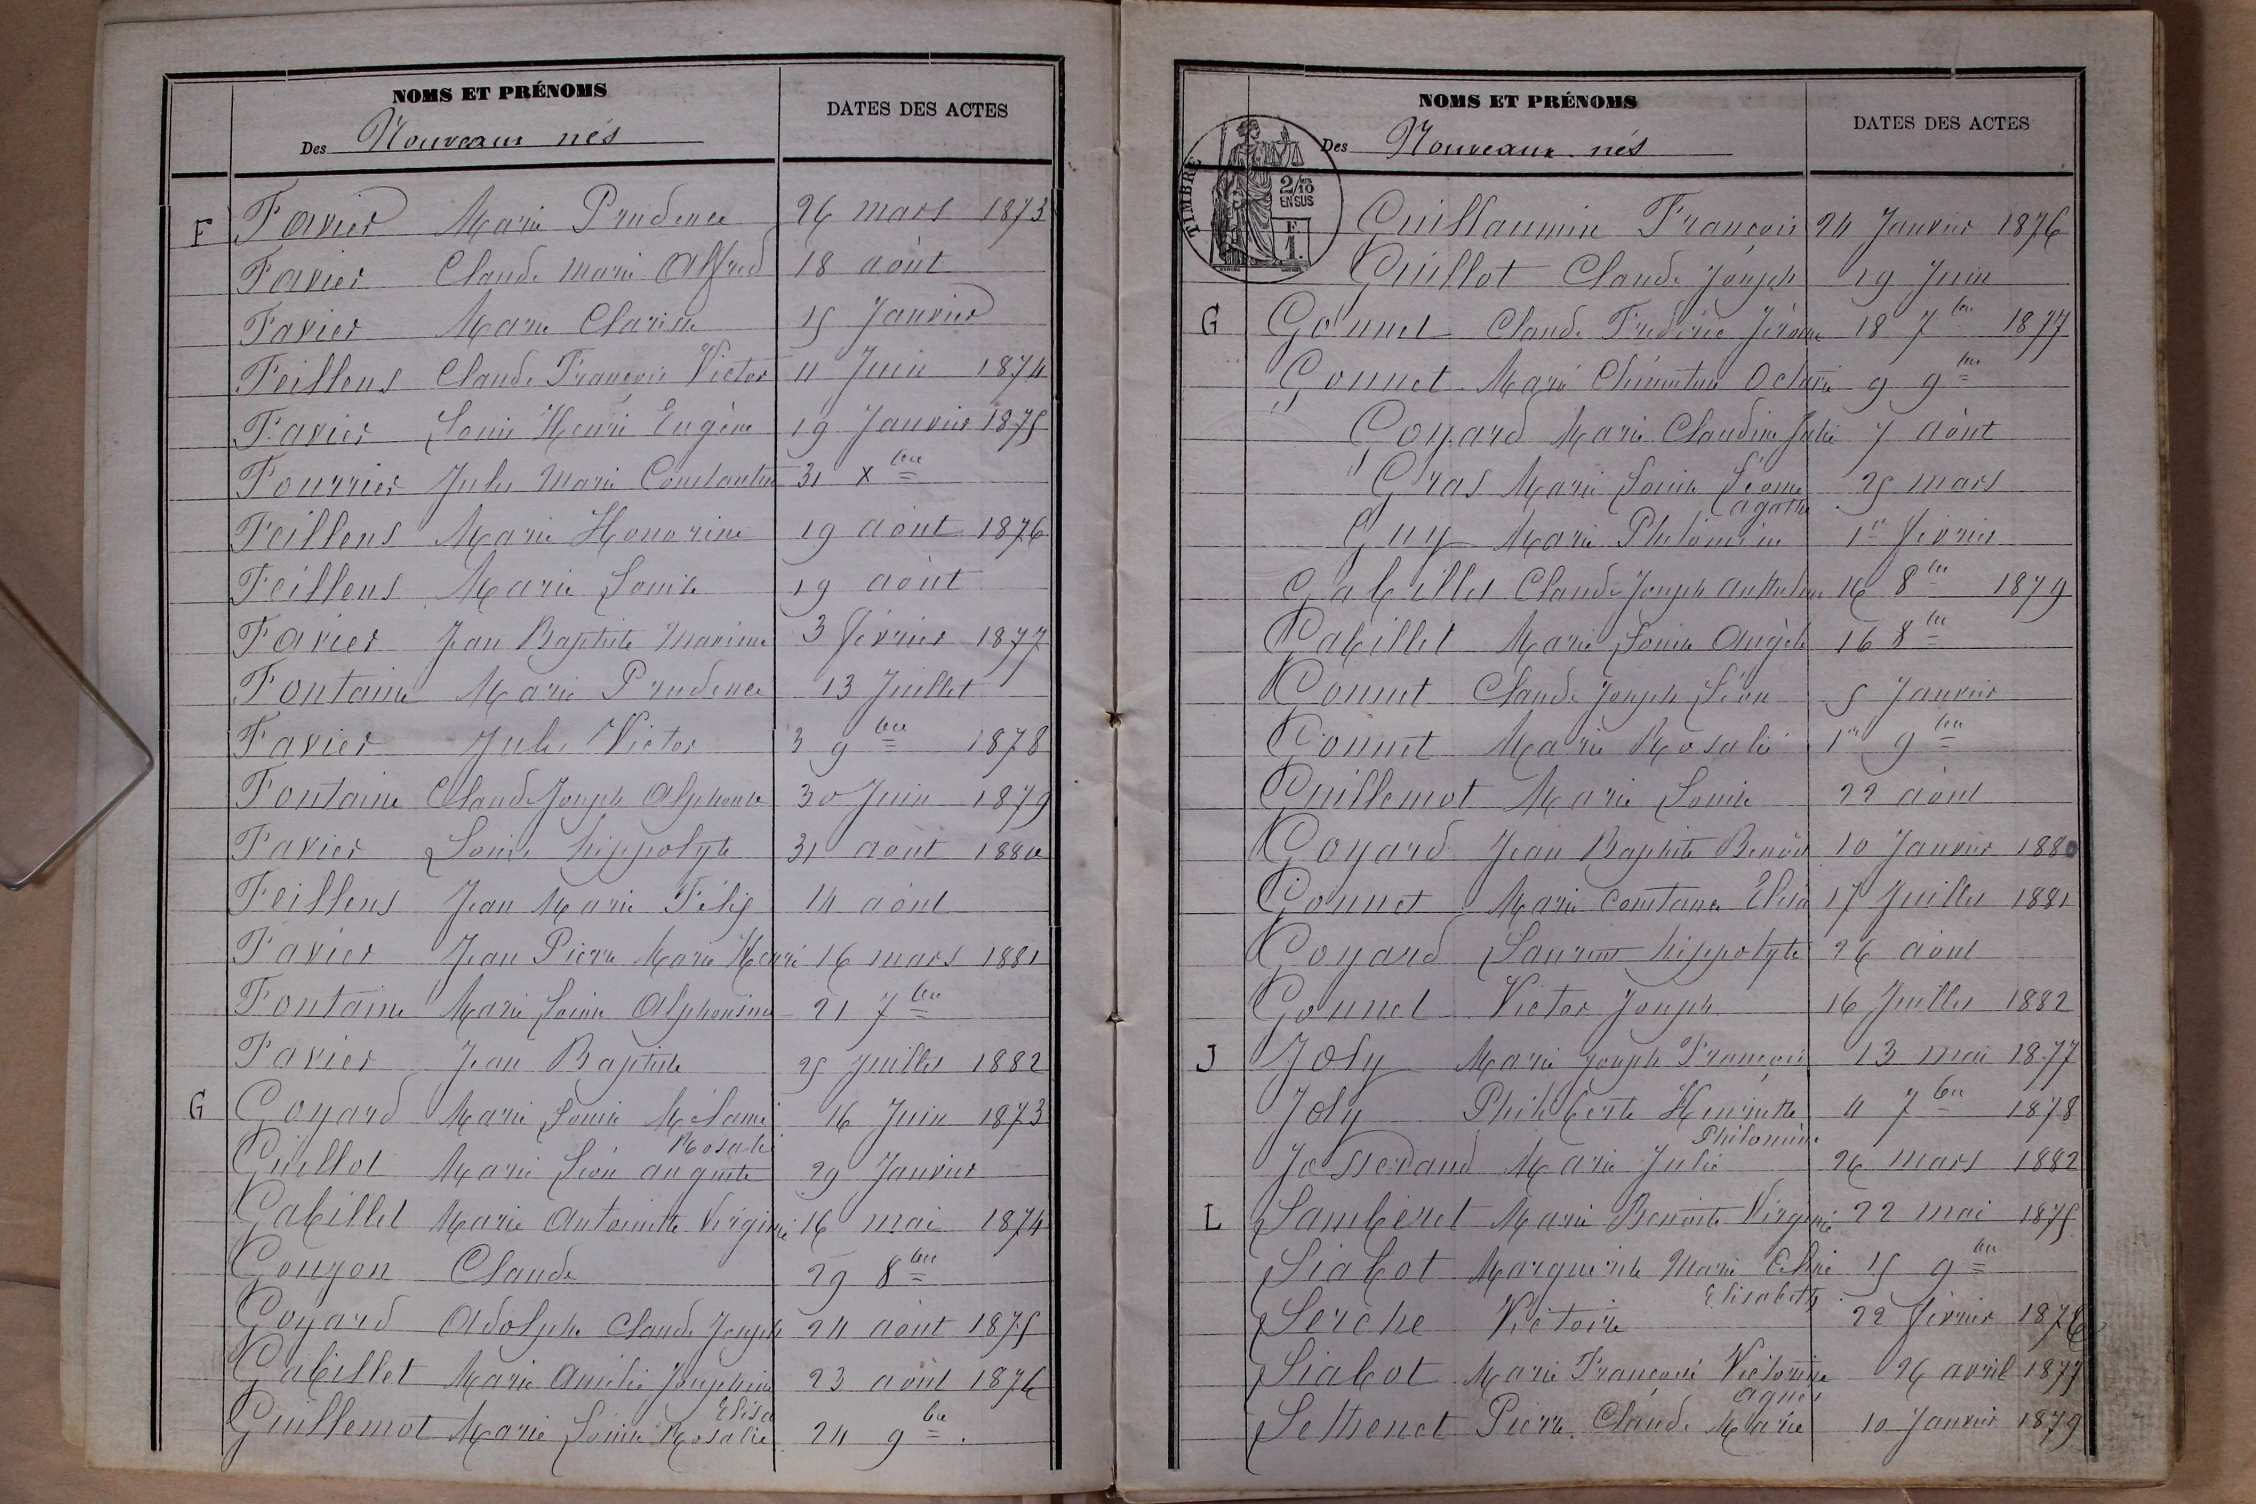 NOMS ET PRÉNOMS
DATES DES ACTES
Des Nouveaux nés
F Favier Marie Prudence 26 mars 1873
Favier Claude Marie Alfred 18 août
Favier Marie Clarisse 15 Janvier
Feillens Claude François Victor 11 Juin 1874
Favier Louis Henri Eugène 19 Janvier 1875
Fourrier Jules Marie Constantin 31 xbre
Feillens Marie Honorine 19 août 1876
Feillens Marie Louise 19 août
Favier Jean Baptiste Maxime 3 février 1877
Fontaine Marie Prudence 13 Juillet
Favier Jules Victor 3 9bre 1878
Fontaine Claude Joseph Alphonse 30 Juin 1879
Favier Louis hippolyte 31 août 1880
Feillens Jean Marie Félix 14 août
Favier Jean Pierre Marie Henri 16 mars 1881
Fontaine Marie Louise Alphonsine 21 7bre
Favier Jean Baptiste 25 Juillet 1882
G Goyard Marie Louise Mélanie 16 Juin 1873
Rosalie
Guillot Marie Léonie auguste 29 Janvier
Gabillet Marie Antoinette Virginie 16 mai 1874
Gougon Claude 29 8bre
Goyard Adolphe Claude Joseph 24 août 1875
Gabillet Marie Amélie Joséphine 23 août 1876
Elisa
Guillemot Marie Louise Rosalie 24 9bre
NOMS ET PRÉNOMS
DATES DES ACTES
Des Nouveaux nés
TIMBRE
2/10
EN SUS
F.
1.
Guillaumin François 24 Janvier 1876
Guillot Claude Joseph 19 Juin
G Gonnet Claude Frédéric Jérôme 18 7bre 1877
Gonnet Marie Clémentine Octavie 9 9bre
Goyard Marie Claudine Julie 7 août
Gras Marie Louise Léonie 25 mars
agathe
Guy Marie Philomène 1er février
Gabillet Claude Joseph Anthelme 16 8bre 1879
Gabillet Marie Louise Angèle 16 8bre
Gonnet Claude Joseph Léon 5 Janvier
Gonnet Marie Rosalie 1er 9bre
Guillemot Marie Louise 22 août
Goyard Jean Baptiste Benoit 10 Janvier 1880
Gonnet Marie Constance Elisa 17 Juillet 1881
Goyard Laurent hippolyte 26 août
Gonnet Victor Joseph 16 Juillet 1882
J Joly Marie Joseph François 13 mai 1877
Joly Philiberte Henriette 11 7bre 1878
Philomène
Josserand Marie Julie 26 mars 1882
L Lamberet Marie Benoite Virginie 22 mai 1875
Liabot Marguerite Marie Céline 15 9bre
Elisabeth
Lerche Victoire 22 février 1876
Liabot Marie Françoise Victorine 26 avril 1877
agnès
Lethenet Pierre Claude Marie 10 Janvier 1879